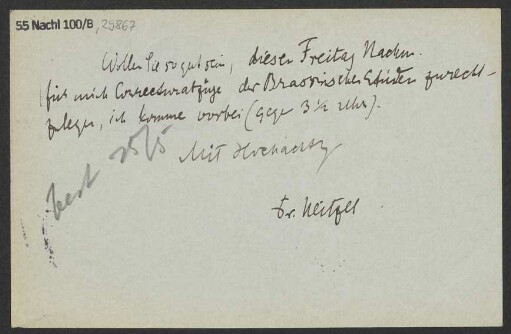 55 Nachl 100/B, 29867
Wollen Sie so gut sein, diesen Freitag Nachm.
für mich Correcturabzüge der Brassinschen Etüden zurecht-
zulegen, ich komme vorbei (gegen 3 1/2 Uhr).
Mit Hochachtg
best 25/5
Dr. Neitzel